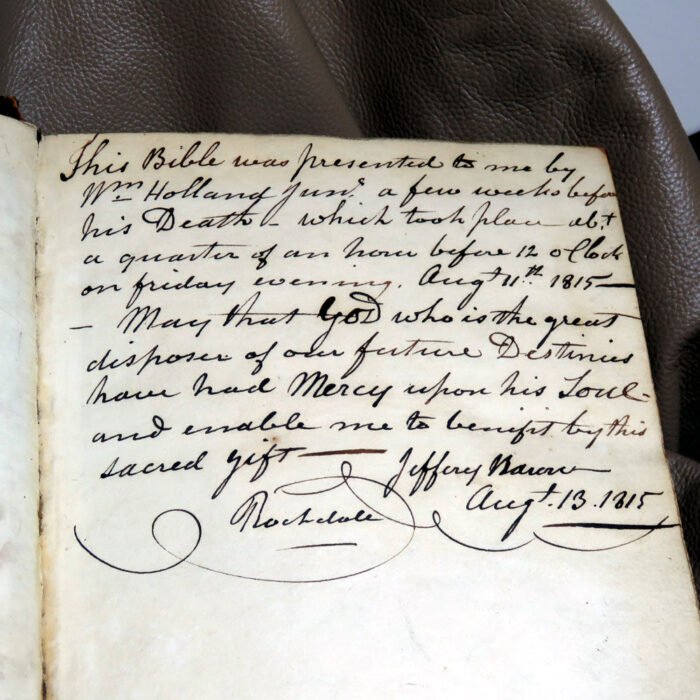 This Bible was presented to me by
Wm Holland Junr. a few weeks before
his Death - which took place abt
a quarter of an hour before 12 oClock
on friday evening. Augt 11th 1815 —
— May that GOD who is the great
disposer of our future Destinies
have had Mercy upon his Soul -
and enable me to benifit by this
sacred gift —
Jeffery
Rochdale
Augt. 13. 1815